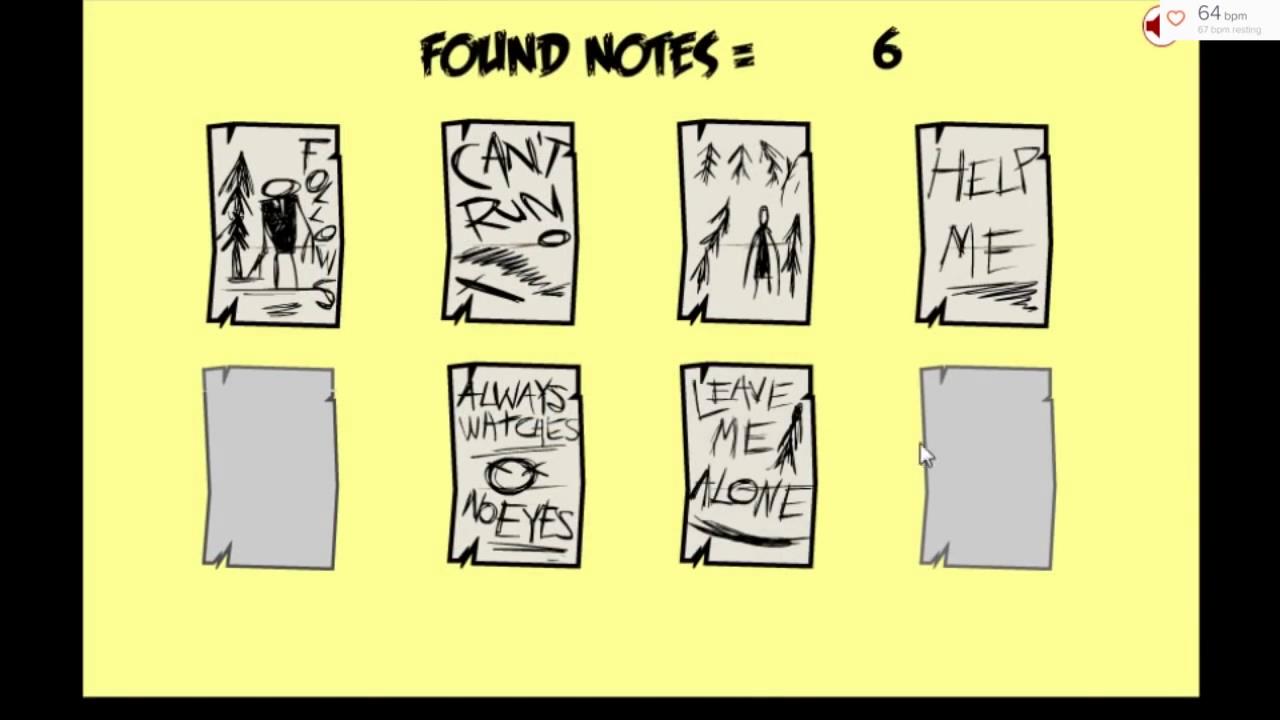 64 bpm
67 bpm resting
FOUND NOTES = 6
FOLLOWS
CAN'T
RUN
HELP
ME
ALWAYS
WATCHES
NO EYES
LEAVE
ME
ALONE